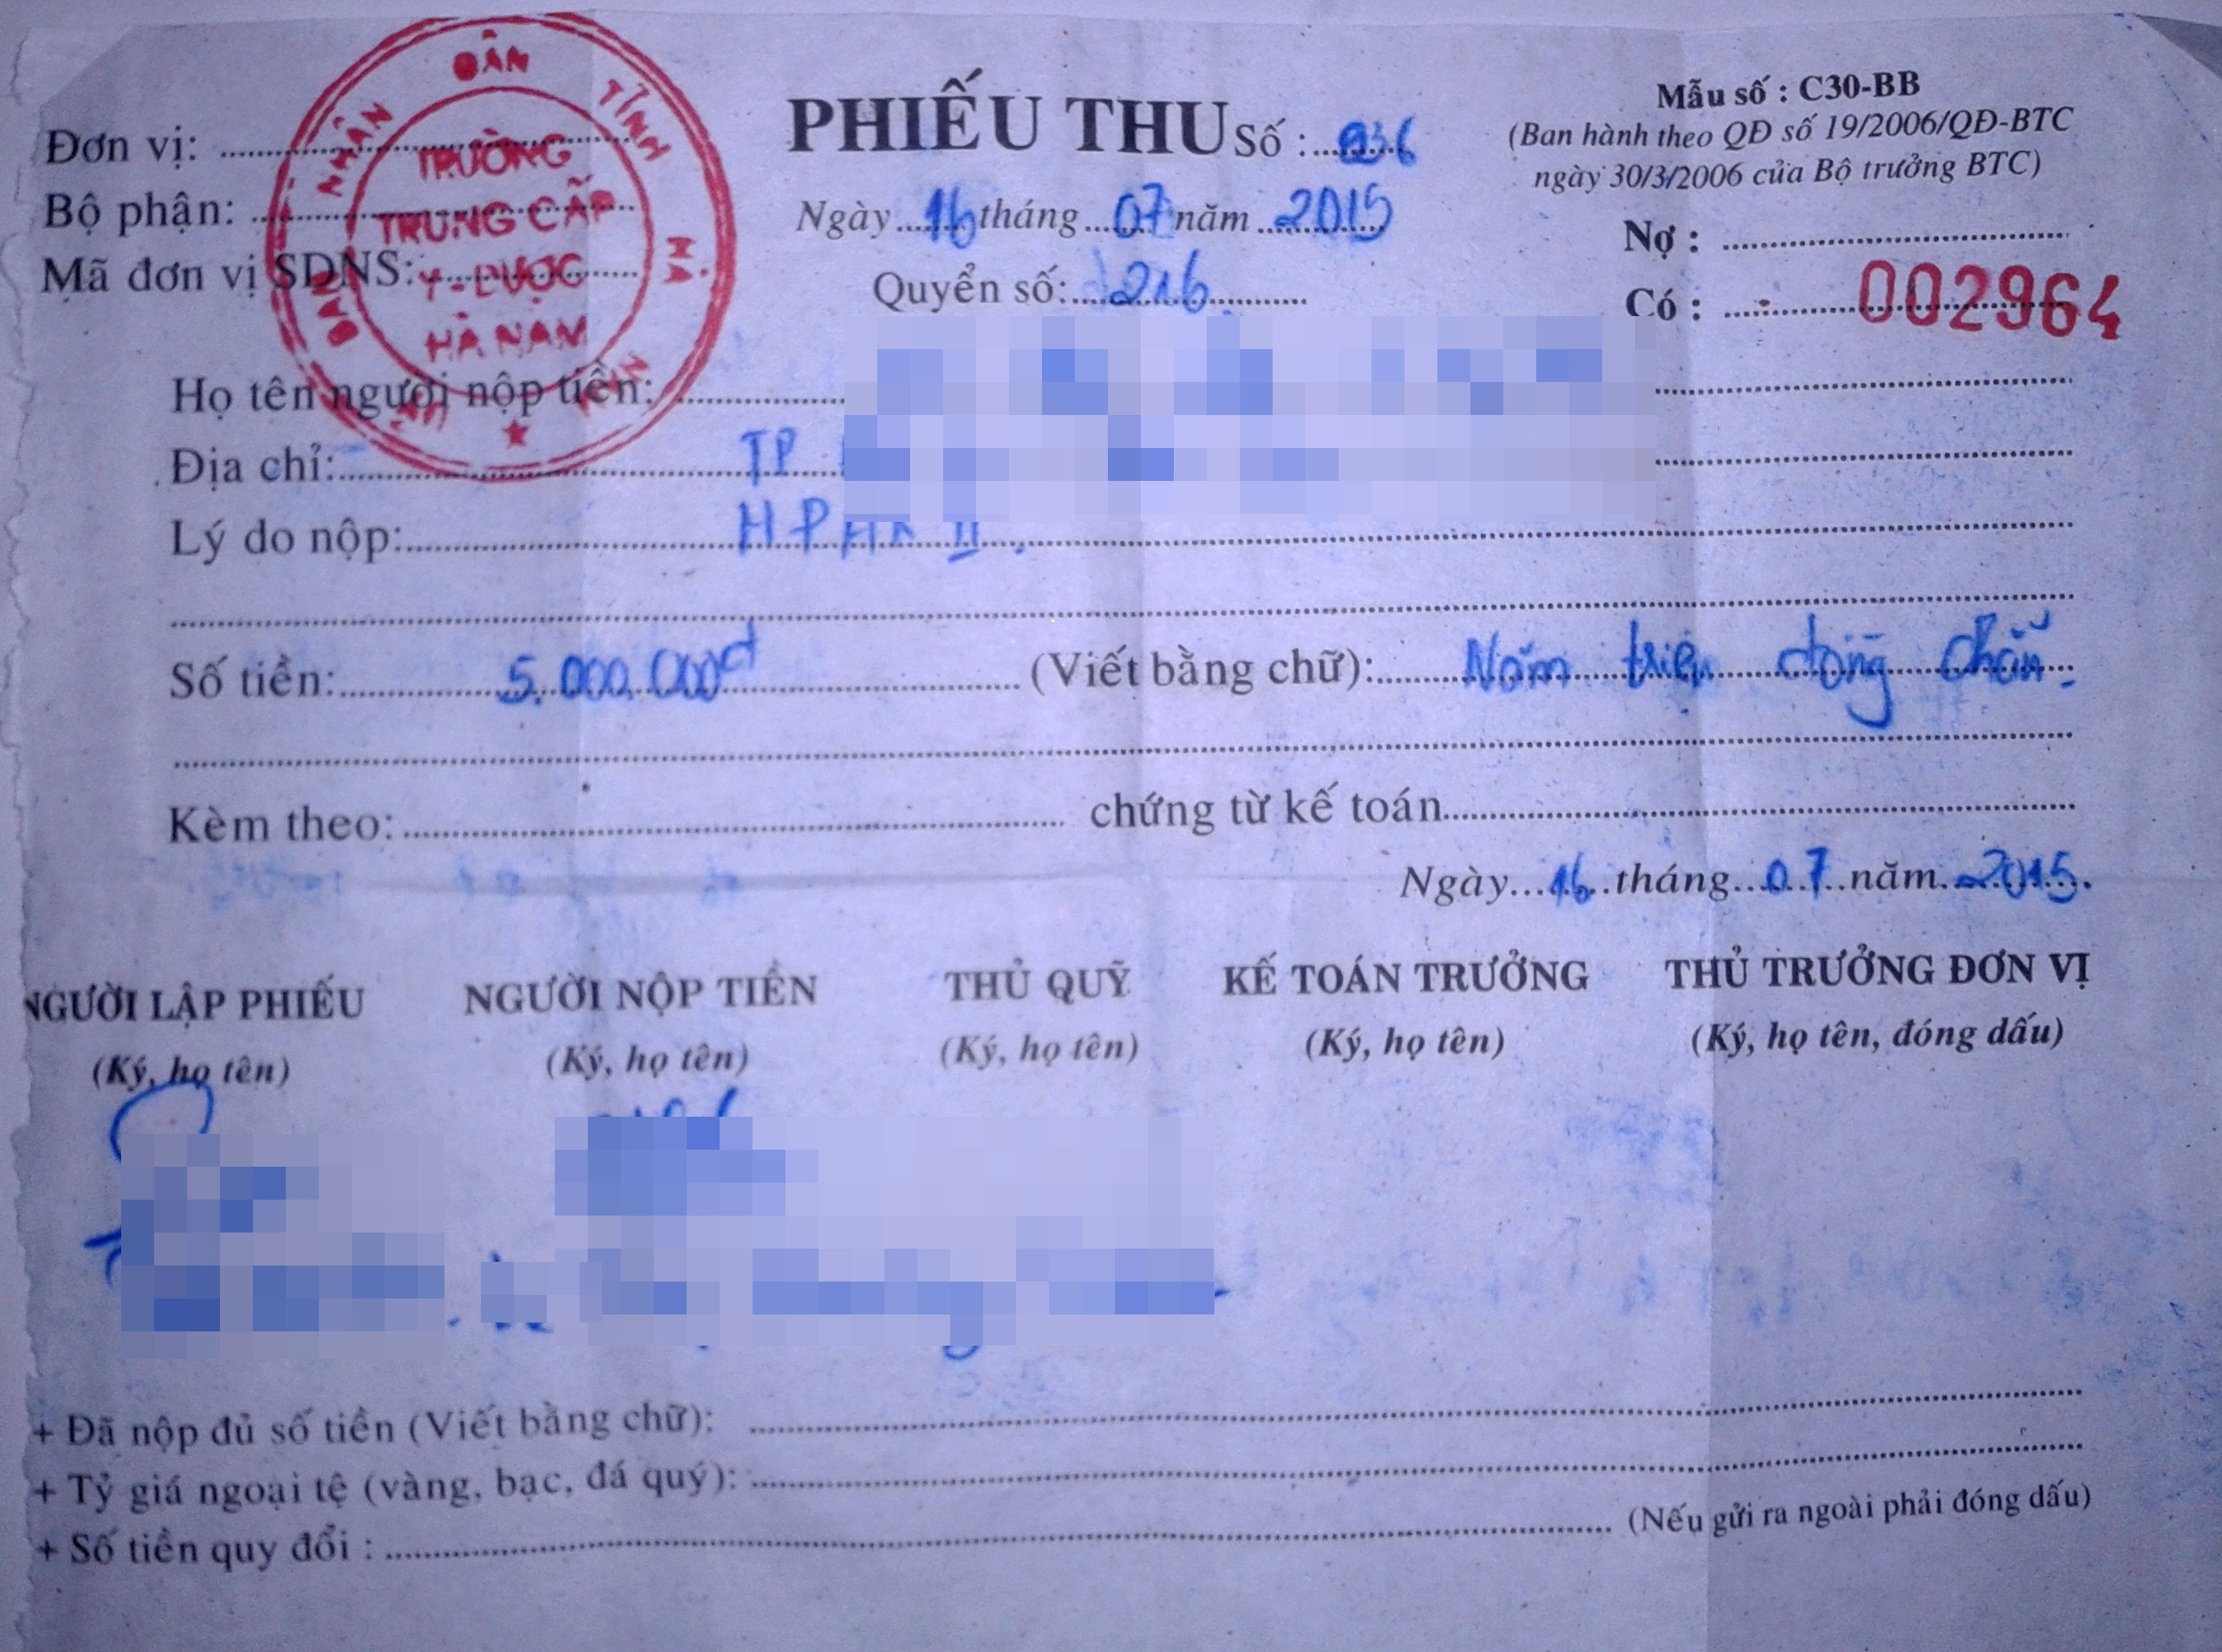 ỦY BAN NHÂN DÂN TỈNH HÀ NAM
TRƯỜNG
TRUNG CẤP
Y - DƯỢC
HÀ NAM
Đơn vị:
Bộ phận:
Mã đơn vị SDNS:
PHIẾU THU Số: 036
Ngày 16 tháng 07 năm 2015
Quyển số: 216
Mẫu số : C30-BB
(Ban hành theo QĐ số 19/2006/QĐ-BTC
ngày 30/3/2006 của Bộ trưởng BTC)
Nợ :
Có : 002964
Họ tên người nộp tiền:
Địa chỉ: TP
Lý do nộp: HPHK II.
Số tiền: 5.000.000đ (Viết bằng chữ): Năm triệu đồng chẵn.
Kèm theo: chứng từ kế toán
Ngày 16 tháng 07 năm 2015.
NGƯỜI LẬP PHIẾU NGƯỜI NỘP TIỀN THỦ QUỸ KẾ TOÁN TRƯỞNG THỦ TRƯỞNG ĐƠN VỊ
(Ký, họ tên) (Ký, họ tên) (Ký, họ tên) (Ký, họ tên) (Ký, họ tên, đóng dấu)
+ Đã nộp đủ số tiền (Viết bằng chữ):
+ Tỷ giá ngoại tệ (vàng, bạc, đá quý):
+ Số tiền quy đổi : (Nếu gửi ra ngoài phải đóng dấu)